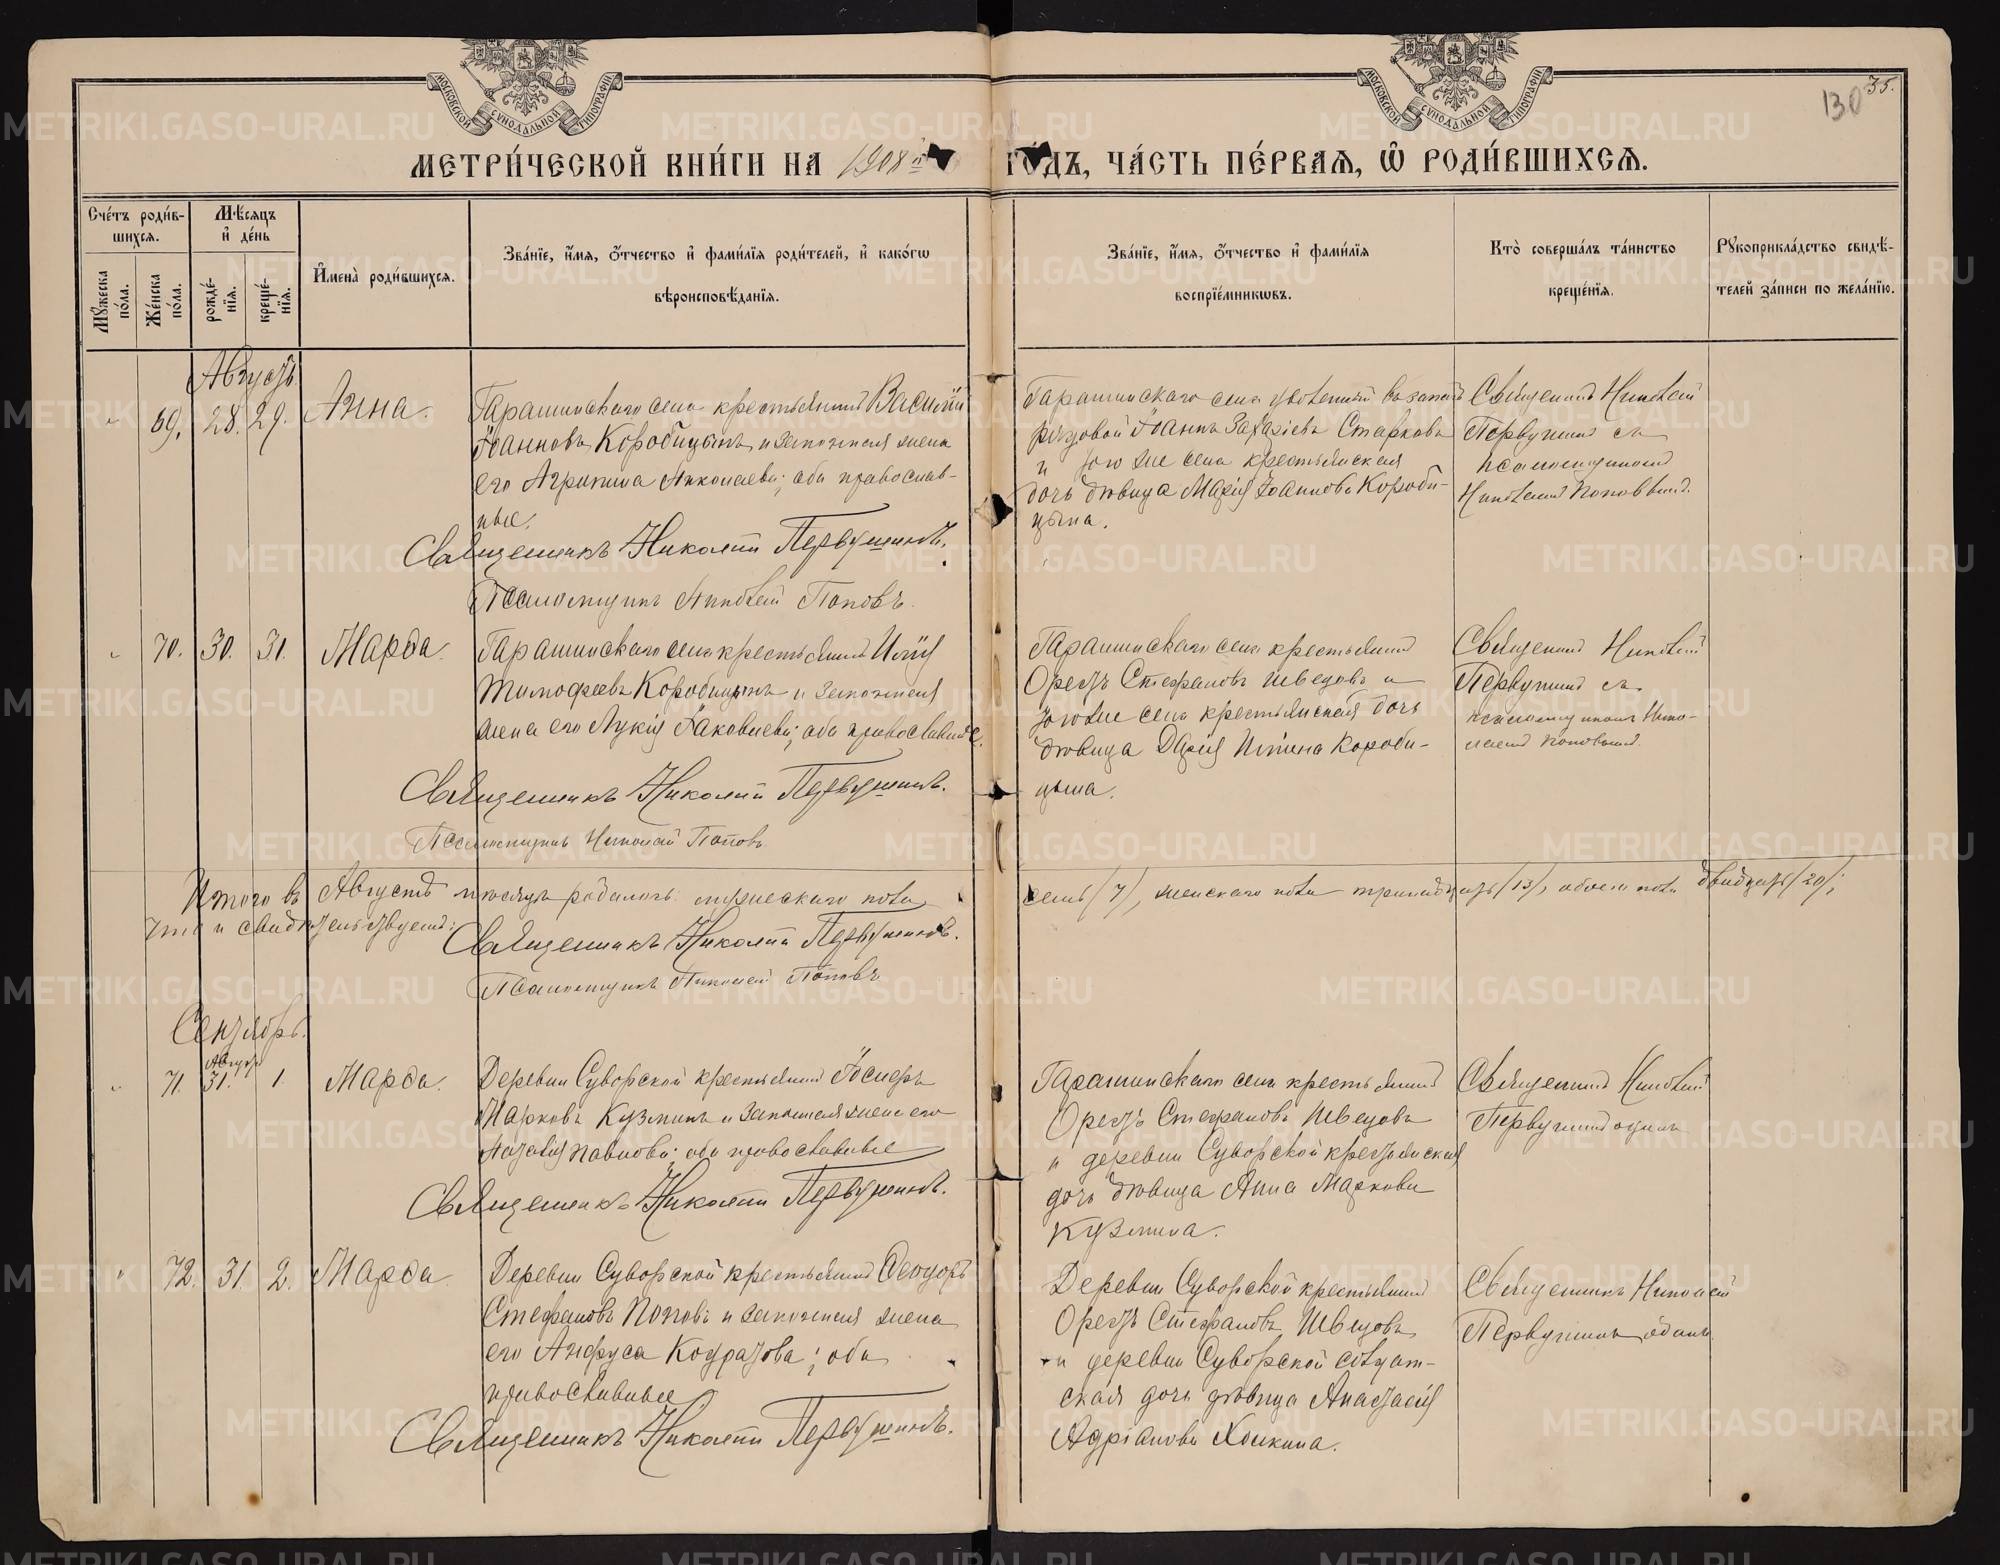 МОСКОВСКОЙ СѴНОДАЛЬНОЙ ТИПОГРАФІИ
МОСКОВСКОЙ СѴНОДАЛЬНОЙ ТИПОГРАФІИ
130 35.
МЕТРИ́ЧЕСКОЙ КНИ́ГИ НА 1908 й ГО́ДЪ, ЧА́СТЬ ПЕ́РВАЯ, Ѡ РОДИ́ВШИХСЯ.
Сче́тъ роди́в-
шихся.
Мꙋжеска по́ла.
Же́нска по́ла.
Мѣ́сяцъ и де́нь
рожде́-нія.
креще́-нія.
Имена̀ роди́вшихся.
Зва́ніе, и́мя, ѻ́тчество и фами́лія роди́телей, и како́гѡ
вѣроисповѣ́данія.
Зва́ніе, и́мя, ѻ́тчество и фами́лія
воспріе́мникѡвъ.
Кто̀ соверша́лъ та́инство
креще́нія.
Рꙋкоприкла́дство свидѣ́-
телей за́писи по жела́нію.
Августъ
69. 28. 29. Анна.
Гарашинскаго села крестьянинъ Василій
Іоанновъ Коробицынъ и законная жена
его Агрипина Николаева; оба православ-
ные.
Священникъ Николай Первушинъ.
Псаломщикъ Николай Поповъ.
Гарашинскаго села уволенный въ запасъ
рядовой Іоаннъ Захаріевъ Старковъ
и того же села крестьянская
дочь дѣвица Марія Іоаннова Короби-
цына.
Священникъ Николай
Первушинъ съ
псаломщикомъ
Николаемъ Поповымъ.
70. 30. 31. Марѳа.
Гарашинскаго села крестьянинъ Илія
Тимофеевъ Коробицынъ и законная
жена его Лукія Іаковлева; оба православные.
Священникъ Николай Первушинъ.
Псаломщикъ Николай Поповъ
Гарашинскаго села крестьянинъ
Орестъ Стефановъ Швецовъ и
того же села крестьянская дочь
дѣвица Дарія Ильина Короби-
цына.
Священникъ Николай
Первушинъ съ
псаломщикомъ Нико-
лаемъ Поповымъ.
Итого въ Августѣ мѣсяцѣ родилось: мужескаго пола семь (7), женскаго пола тринадцать (13), обоего пола двадцать (20);
что и свидѣтельствуемъ:
Священникъ Николай Первушинъ.
Псаломщикъ Николай Поповъ
Сентябрь.
71. Август 31. 1. Марѳа.
Деревни Суворской крестьянинъ Іосифъ
Марковъ Кузминъ и законная жена его
Наталія Павлова; оба православные
Священникъ Николай Первушинъ.
Гарашинскаго села крестьянинъ
Орестъ Стефановъ Швецовъ
и деревни Суворской крестьянская
дочь дѣвица Анна Маркова
Кузмина.
Священникъ Николай
Первушинъ одинъ
72. 31. 2. Марѳа.
Деревни Суворской крестьянинъ Ѳеодоръ
Стефановъ Поповъ и законная жена
его Анфуса Кодратова; оба
православные
Священникъ Николай Первушинъ.
Деревни Суворской крестьянинъ
Орестъ Стефановъ Швецовъ
и деревни Суворской солдат-
ская дочь дѣвица Анастасія
Адріанова
Священникъ Николай
Первушинъ одинъ.
METRIKI.GASO-URAL.RU